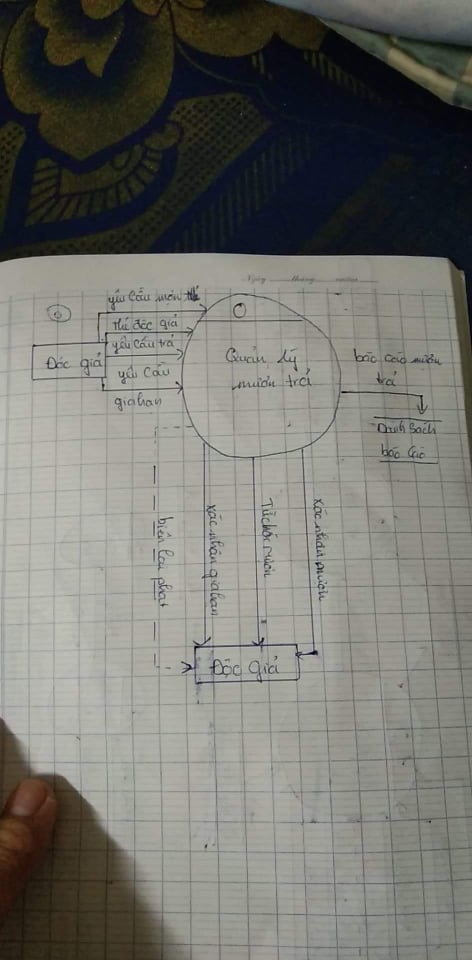 Ngày tháng năm
yêu cầu mượn
thẻ độc giả
yêu cầu trả
Độc giả
yêu cầu
gia hạn
Quản lý
mượn trả
báo cáo mượn
trả
Danh sách
báo cáo
biên lai phạt
xác nhận gia hạn
Từ chối mượn
xác nhận mượn
Độc Giả